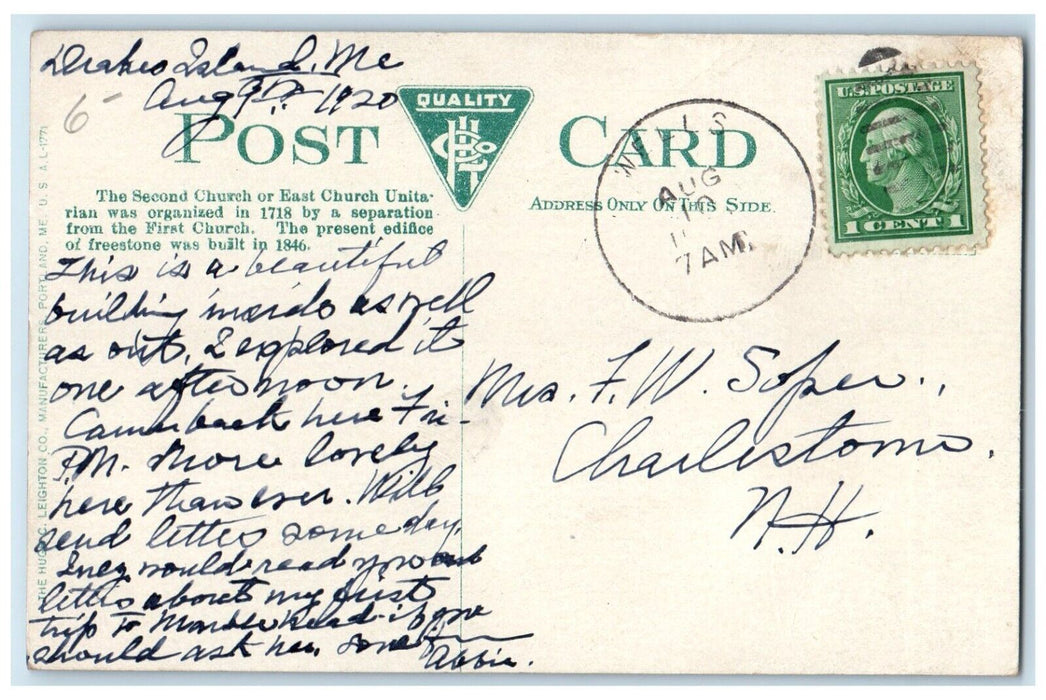 Drakes Island, Me
Aug 9th 1920
6
POST CARD
QUALITY
The Second Church or East Church Unita-
rian was organized in 1718 by a separation
from the First Church. The present edifice
of freestone was built in 1846.
ADDRESS ONLY ON THIS SIDE.
WELLS
AUG
10
7 AM.
U.S. POSTAGE
1 CENT 1
This is a beautiful
building inside as well
as out, I explored it
one afternoon.
Came back here Fri-
P.M. More lovely
here than ever. Will
send letter some day.
Inez would read you out
letter about my first
trip to Marblehead if you
should ask her.
Abbie.
Mrs. F. W. Soper.,
Charlestown.
N.H.
THE HUGH C. LEIGHTON CO., MANUFACTURERS, PORTLAND, ME. U. S. A.